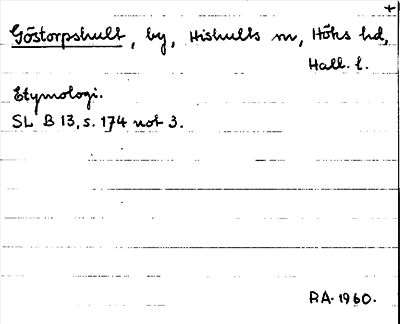 +
Göstorpshult, by, Hishults sn, Höks hd,
Hall. l.
Etymologi.
SL B 13, s. 174 not 3.
RA. 1960.